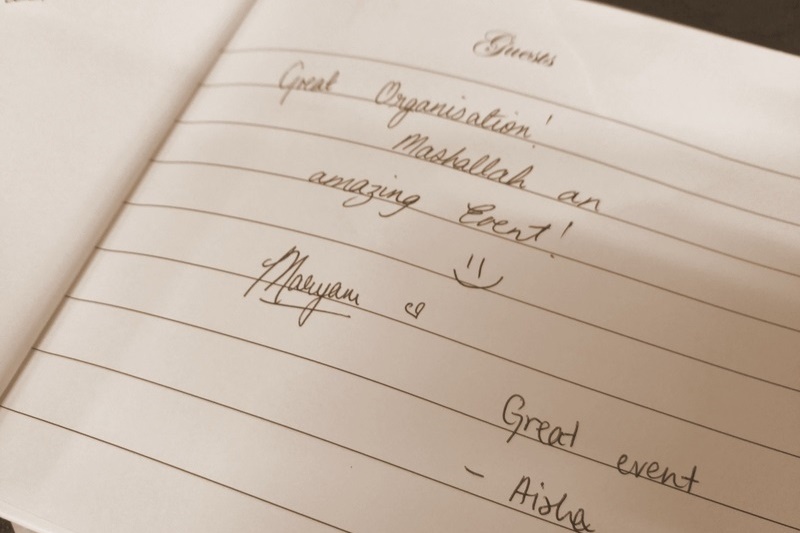 Guests
Great Organisation!
Mashallah an
amazing Event!
Maryam
Great event
- Aisha